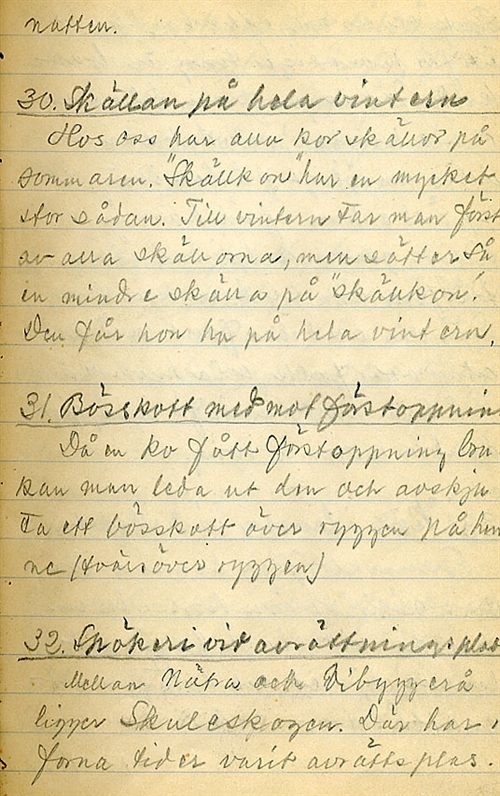 natten.
30. Skällan på hela vintern
Hos oss har alla kor skällor på
sommaren. "Skällkon" har en mycket
stor sådan. Till vintern tar man först
av alla skällorna, men sätter så
en mindre skälla på "skällkon".
Den får hon ha på hela vintern.
31. Bösskott med mot förstoppnin
Då en ko fått förstoppning
kan man leda ut den och avskju
ta ett bösskott över ryggen på hen
ne (tvärs över ryggen)
32. Spökeri vid avrättningsplats
Mellan Nätra och Vibyggerå
ligger Skuleskogen. Där har i
forna tider varit avrättsplas.